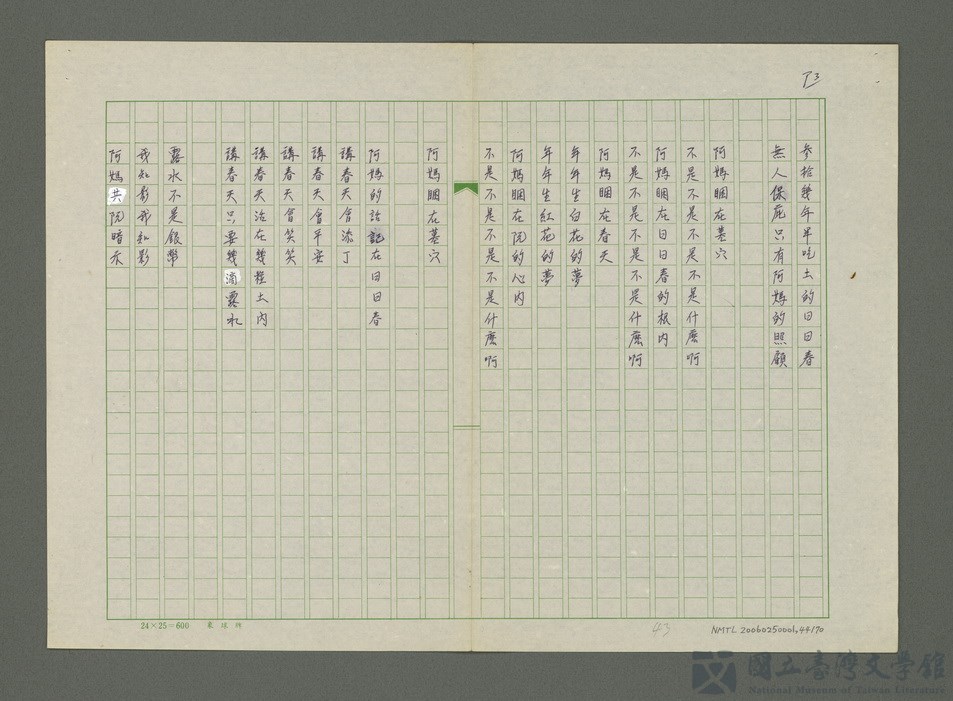 P3
參拾幾年半吃土的日日春
無人保庇只有阿媽的照顧
阿媽睏在墓穴
不是不是不是不是什麼啊
阿媽睏在日日春的根內
不是不是不是不是什麼啊
阿媽睏在春天
年年生白花的夢
年年生紅花的夢
阿媽睏在阮的心內
不是不是不是不是什麼啊
阿媽睏在墓穴
阿媽的話記在日日春
講春天會添丁
講春天會平安
講春天會笑笑
講春天治在幾粒土內
講春天只要幾滴露水
露水不是銀幣
我知影我知影
阿媽共阮暗示
24×25=600
43
NMTL 20060250001.44170
國立臺灣文學館
National Museum of Taiwan Literature